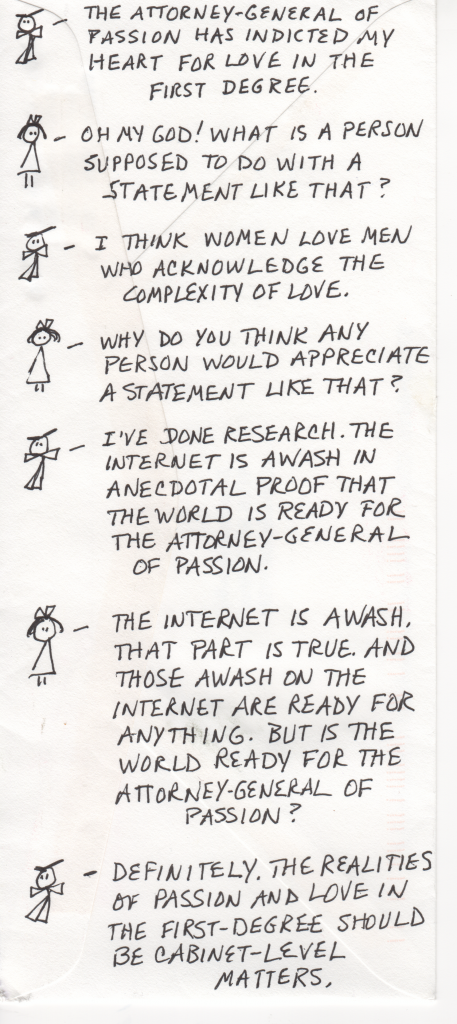 THE ATTORNEY-GENERAL OF
PASSION HAS INDICTED MY
HEART FOR LOVE IN THE
FIRST DEGREE.
OH MY GOD! WHAT IS A PERSON
SUPPOSED TO DO WITH A
STATEMENT LIKE THAT?
I THINK WOMEN LOVE MEN
WHO ACKNOWLEDGE THE
COMPLEXITY OF LOVE.
WHY DO YOU THINK ANY
PERSON WOULD APPRECIATE
A STATEMENT LIKE THAT?
I'VE DONE RESEARCH. THE
INTERNET IS AWASH IN
ANECDOTAL PROOF THAT
THE WORLD IS READY FOR
THE ATTORNEY-GENERAL
OF PASSION.
THE INTERNET IS AWASH.
THAT PART IS TRUE. AND
THOSE AWASH ON THE
INTERNET ARE READY FOR
ANYTHING. BUT IS THE
WORLD READY FOR THE
ATTORNEY-GENERAL OF
PASSION?
DEFINITELY. THE REALITIES
OF PASSION AND LOVE IN
THE FIRST-DEGREE SHOULD
BE CABINET-LEVEL
MATTERS.